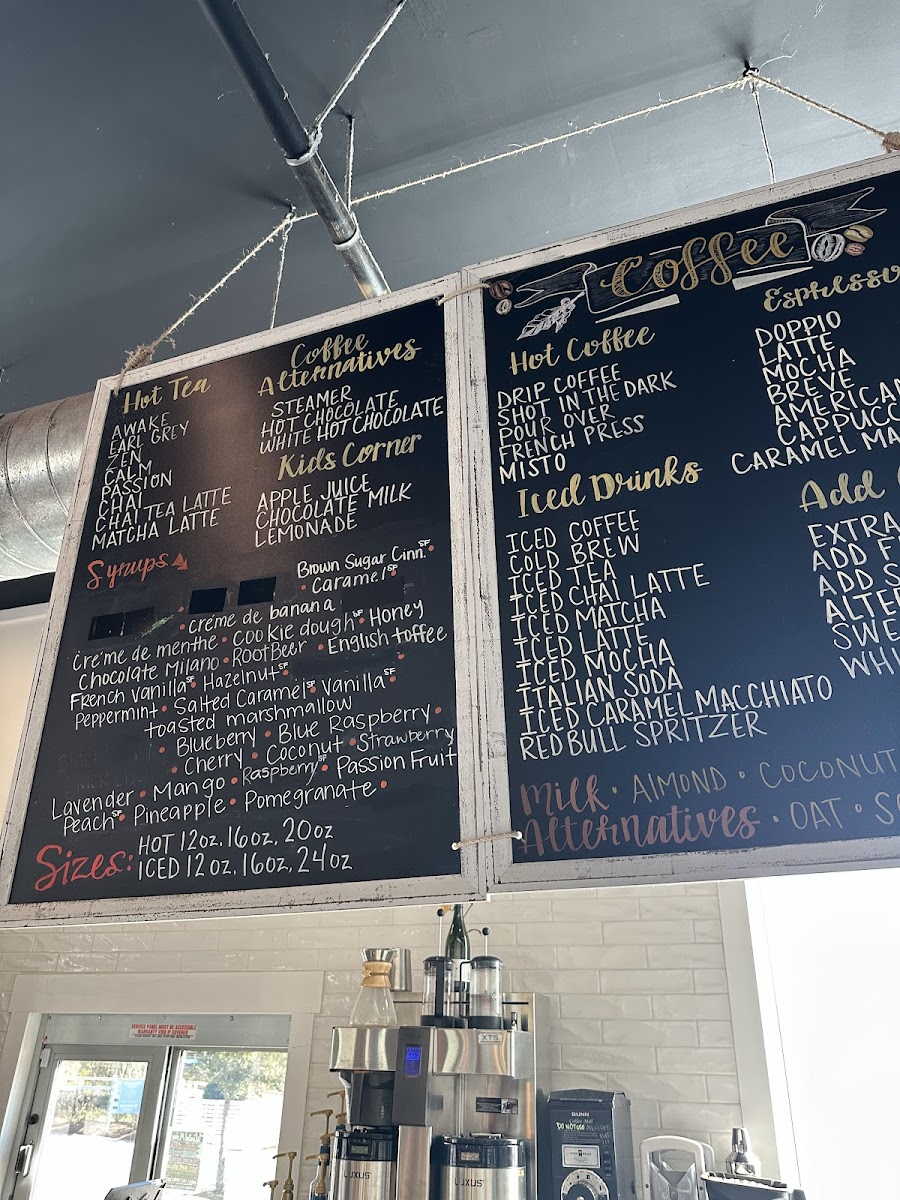 Hot Tea
AWAKE
EARL GREY
ZEN
CALM
PASSION
CHAI
CHAI TEA LATTE
MATCHA LATTE
Coffee
Alternatives
STEAMER
HOT CHOCOLATE
WHITE HOT CHOCOLATE
Kids Corner
APPLE JUICE
CHOCOLATE MILK
LEMONADE
Syrups
Brown Sugar Cinn SF •
• Caramel SF •
• créme de banana
créme de menthe • cookie dough SF • Honey
Chocolate Milano • RootBeer • English toffee
French Vanilla SF • Hazelnut SF •
Peppermint • Salted Caramel SF • Vanilla SF •
toasted marshmallow
• Blueberry • Blue Raspberry •
• Cherry • Coconut • Strawberry
Lavender • Mango • Raspberry SF • Passion Fruit
Peach SF • Pineapple • Pomegranate •
Sizes: HOT 12oz, 16oz, 20oz
ICED 12oz, 16oz, 24oz
Coffee
Hot Coffee
DRIP COFFEE
SHOT IN THE DARK
POUR OVER
FRENCH PRESS
MISTO
Espresso
DOPPIO
LATTE
MOCHA
BREVE
AMERICAN
CAPPUCC
CARAMEL MA
Iced Drinks
ICED COFFEE
COLD BREW
ICED TEA
ICED CHAI LATTE
ICED MATCHA
ICED LATTE
ICED MOCHA
ITALIAN SODA
ICED CARAMEL MACCHIATO
RED BULL SPRITZER
Add
EXTRA
ADD F
ADD S
ALTER
SWE
WHI
Milk • ALMOND • COCONUT
Alternatives • OAT • S
SERVICE PANEL MUST BE ACCESSIBLE
WARRANTY VOID IF COVERED
XTS
BUNN
DO NOT USE
LUXUS
LUXUS